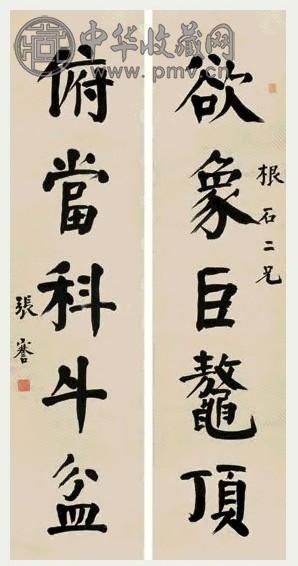 中华收藏网
www.pmv.cn
欲象巨鼇頂
根石二兄
俯當科斗盆
張謇